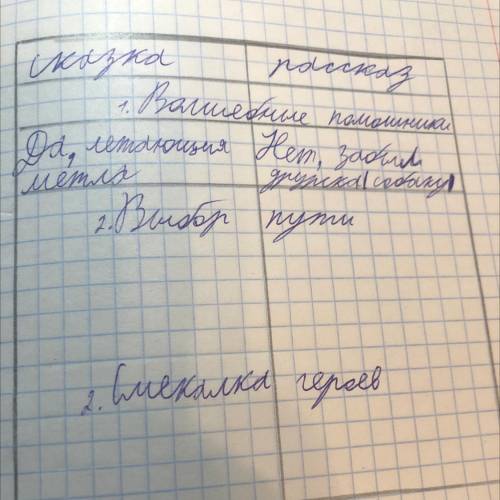 сказка рассказ
1. Волшебные помошники
Да, летающия Нет, забыл
метла дружка (собаку)
2. Выбор пути
2. Смекалка героев